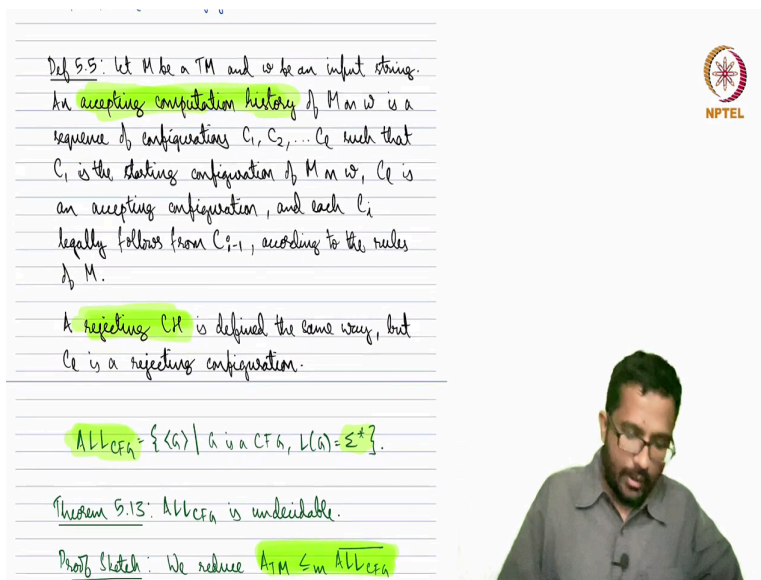 Def 5.5: Let M be a TM and w be an input string.
An accepting computation history of M on w is a
sequence of configurations C₁, C₂, ... Cℓ such that
C₁ is the starting configuration of M on w, Cℓ is
an accepting configuration, and each Cᵢ
legally follows from Cᵢ₋₁, according to the rules
of M.
A rejecting CH is defined the same way, but
Cℓ is a rejecting configuration.
ALL_CFG = {⟨G⟩ | G is a CFG, L(G) = Σ*}.
Theorem 5.13: ALL_CFG is undecidable.
Proof Sketch: We reduce A_TM ≤m \overline{ALL_CFG}
NPTEL